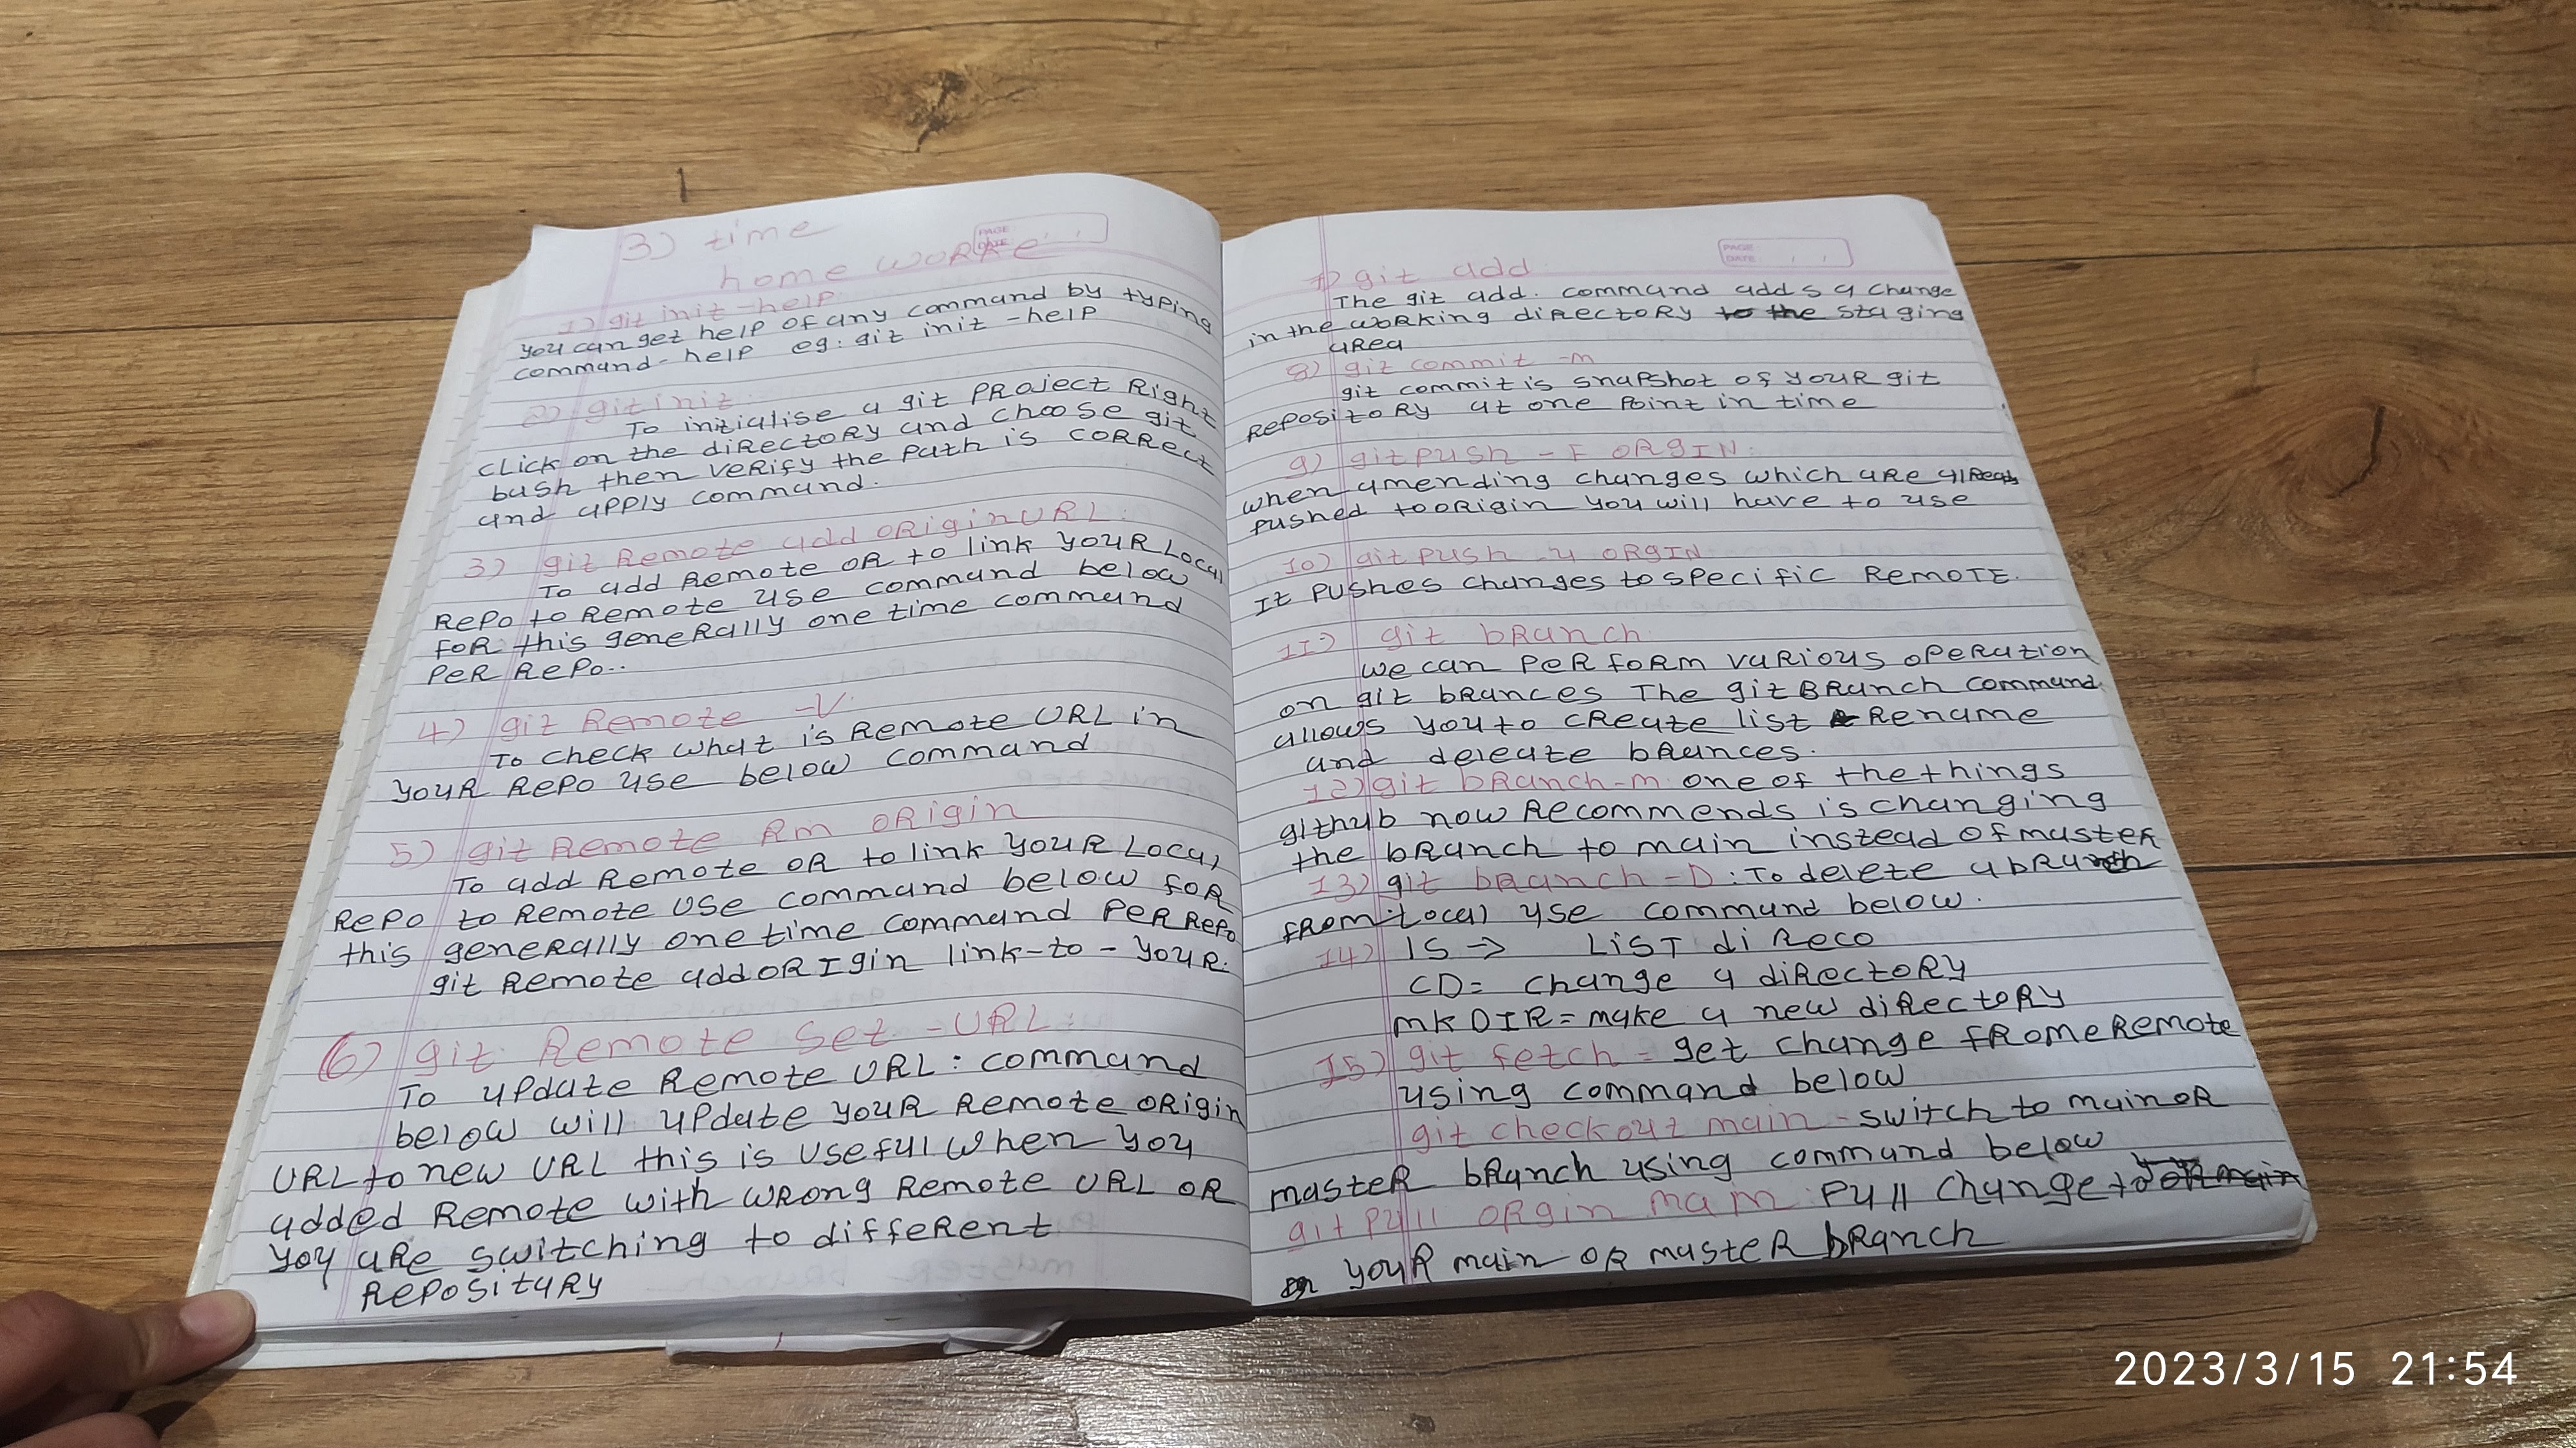 3) time
PAGE
DATE
home WORKe
1) git init -help
you can get help of any command by typing
command-help eg: git init -help
2) git init:
To initialise a git PRoject Right
click on the diRectoRy and choose git
bash then veRify the path is coRRect
and apply command.
3) git Remote add oRigin URL:
To add Remote oR to link youR Local
Repo to Remote use command below
foR this geneRally one time command
peR Repo..
4) git Remote -V.
To check what is Remote URL in
youR Repo use below command
5) git Remote Rm oRigin
To add Remote oR to link youR Local
Repo to Remote use command below foR
this geneRally one time command peR Repo
git Remote add oRIgin link-to-youR.
6) git Remote Set -URL:
To update Remote URL: command
below will update youR Remote oRigin
URL to new URL this is useful when you
added Remote with wRong Remote URL oR
you aRe switching to diffeRent
RepositaRy
PAGE
DATE
7) git add
The git add. command adds a change
in the woRking diRectoRy to the staging
aRea
8) git commit -m
git commit is snapshot of youR git
RepositoRy at one point in time
9) git push -F ORgIN:
when amending changes which aRe alReady
pushed to oRigin you will have to use
10) git push -u ORgIN
It pushes changes to specific RemoTE.
11) git bRanch
we can peRfoRm vaRious opeRation
on git bRances The git BRanch command
allows you to cReate list Rename
and deleate bRances.
12) git bRanch-m one of the things
github now Recommends is changing
the bRanch to main instead of masteR
13) git bRanch -D: To delete a bRanch
fRom local use command below.
14) lS → LiST diReco
CD= change a diRectoRy
mKDIR= make a new diRectoRy
15) git fetch = get change fRome Remote
using command below
git checkout main - switch to main oR
masteR bRanch using command below
git pull oRgin main pull change to
youR main oR masteR bRanch
2023/3/15 21:54